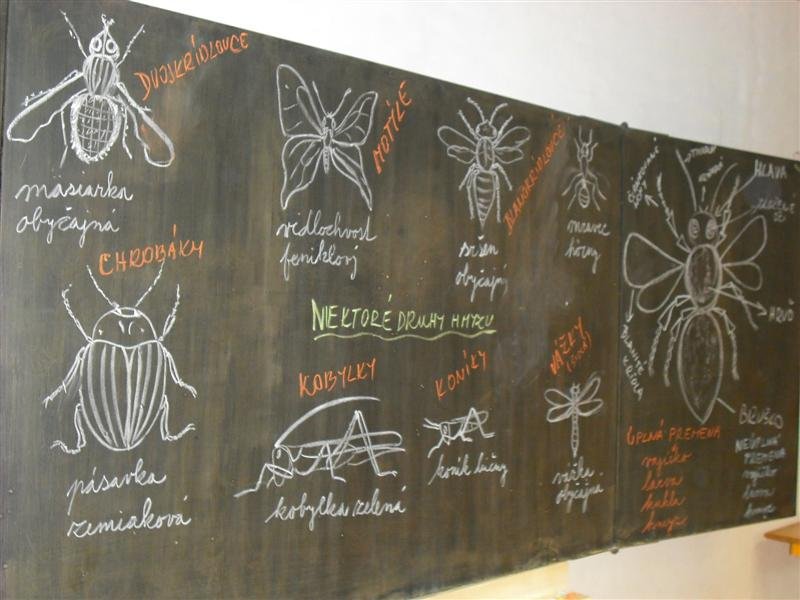 DVOJKRÍDLOVCE
mäsiarka
obyčajná
MOTÝLE
vidlochvost
feniklový
BLANOKRÍDLOVCE
sršeň
obyčajný
mravec
CHROBÁKY
pásavka
zemiaková
NIEKTORÉ DRUHY HMYZU
KOBYLKY
kobylka zelená
KONÍKY
koník lúčny
VÁŽKY
vážka
obyčajná
HLAVA
HRUĎ
BLANITÉ
KRÍDLA
BRUŠKO
ÚPLNÁ PREMENA
vajíčko
larva
kukla
NEÚPLNÁ
PREMENA
vajíčko
larva